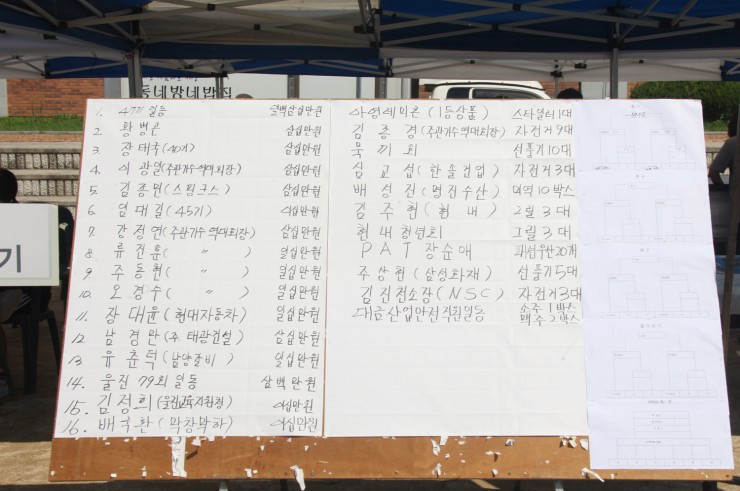 동네방네밥집
기
1. 47기 일동 일백삼십만원
2 황병곤 삼십만원
3. 장태국(40기) 삼십만원
4. 이광일(주관기수역대회장) 삼십만원
5. 김종원(스핑크스) 삼십만원
6. 임대길(45기) 이십만원
7. 강정연(주관기수역대회장) 삼십만원
8. 류진훈( 〃 ) 일십만원
9 주동현( 〃 ) 일십만원
10. 오경수( 〃 ) 일십만원
11. 장대윤(현대자동차) 일십만원
12 남경만(주 태광건설) 삼십만원
13. 유춘덕(남양갈비) 일십만원
14. 울진 79회 일동 삼백만원
15. 김정희(울진교육지원청) 이십만원
16. 배국환(막창막하) 이십만원
아영레미콘(1등상품) 스타일러1대
김종경(주관기수역대회장) 자전거9대
묵끼회 선풍기10대
심교섭(한솔건업) 자전거3대
배성진(명진수산) 미역10박스
김주현(현내) 그릴3대
현내청년회 그릴3대
PAT 장순애 패션우산20개
주상현(삼성화재) 선풍기5대
김진현소장(NSC) 자전거3대
대금산업안전직원일동 소주1박스 맥주2박스